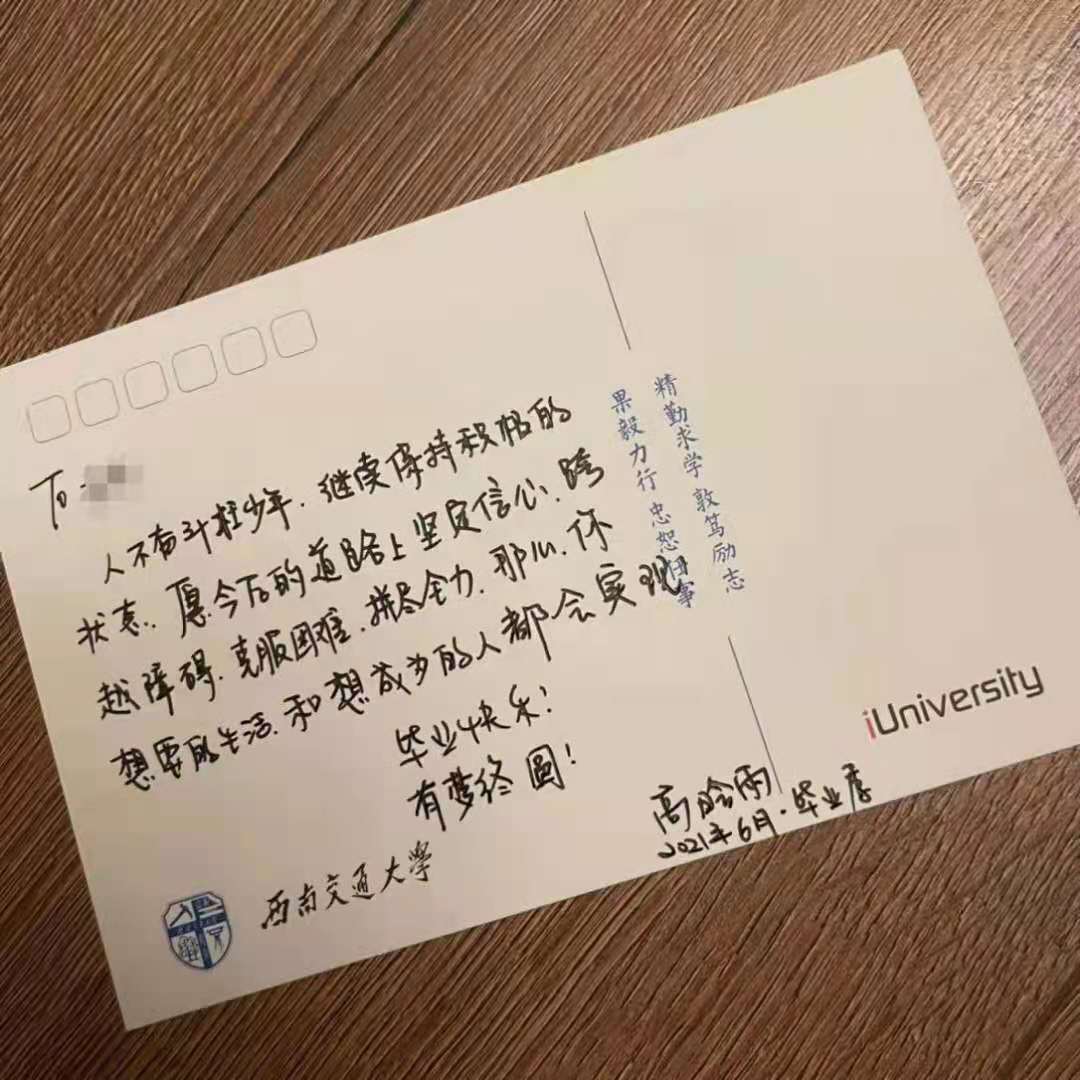 To
人不奋斗枉少年. 继续保持积极的
状态. 愿今后的道路上坚定信心. 跨
越障碍. 克服困难. 拼尽全力. 那么. 你
想要的生活. 和想成为的人都会实现
毕业快乐!
有梦终圆!
高晗雨
2021年6月·毕业季
精勤求学 敦笃励志
果毅力行 忠恕任事
iUniversity
西南交通大学